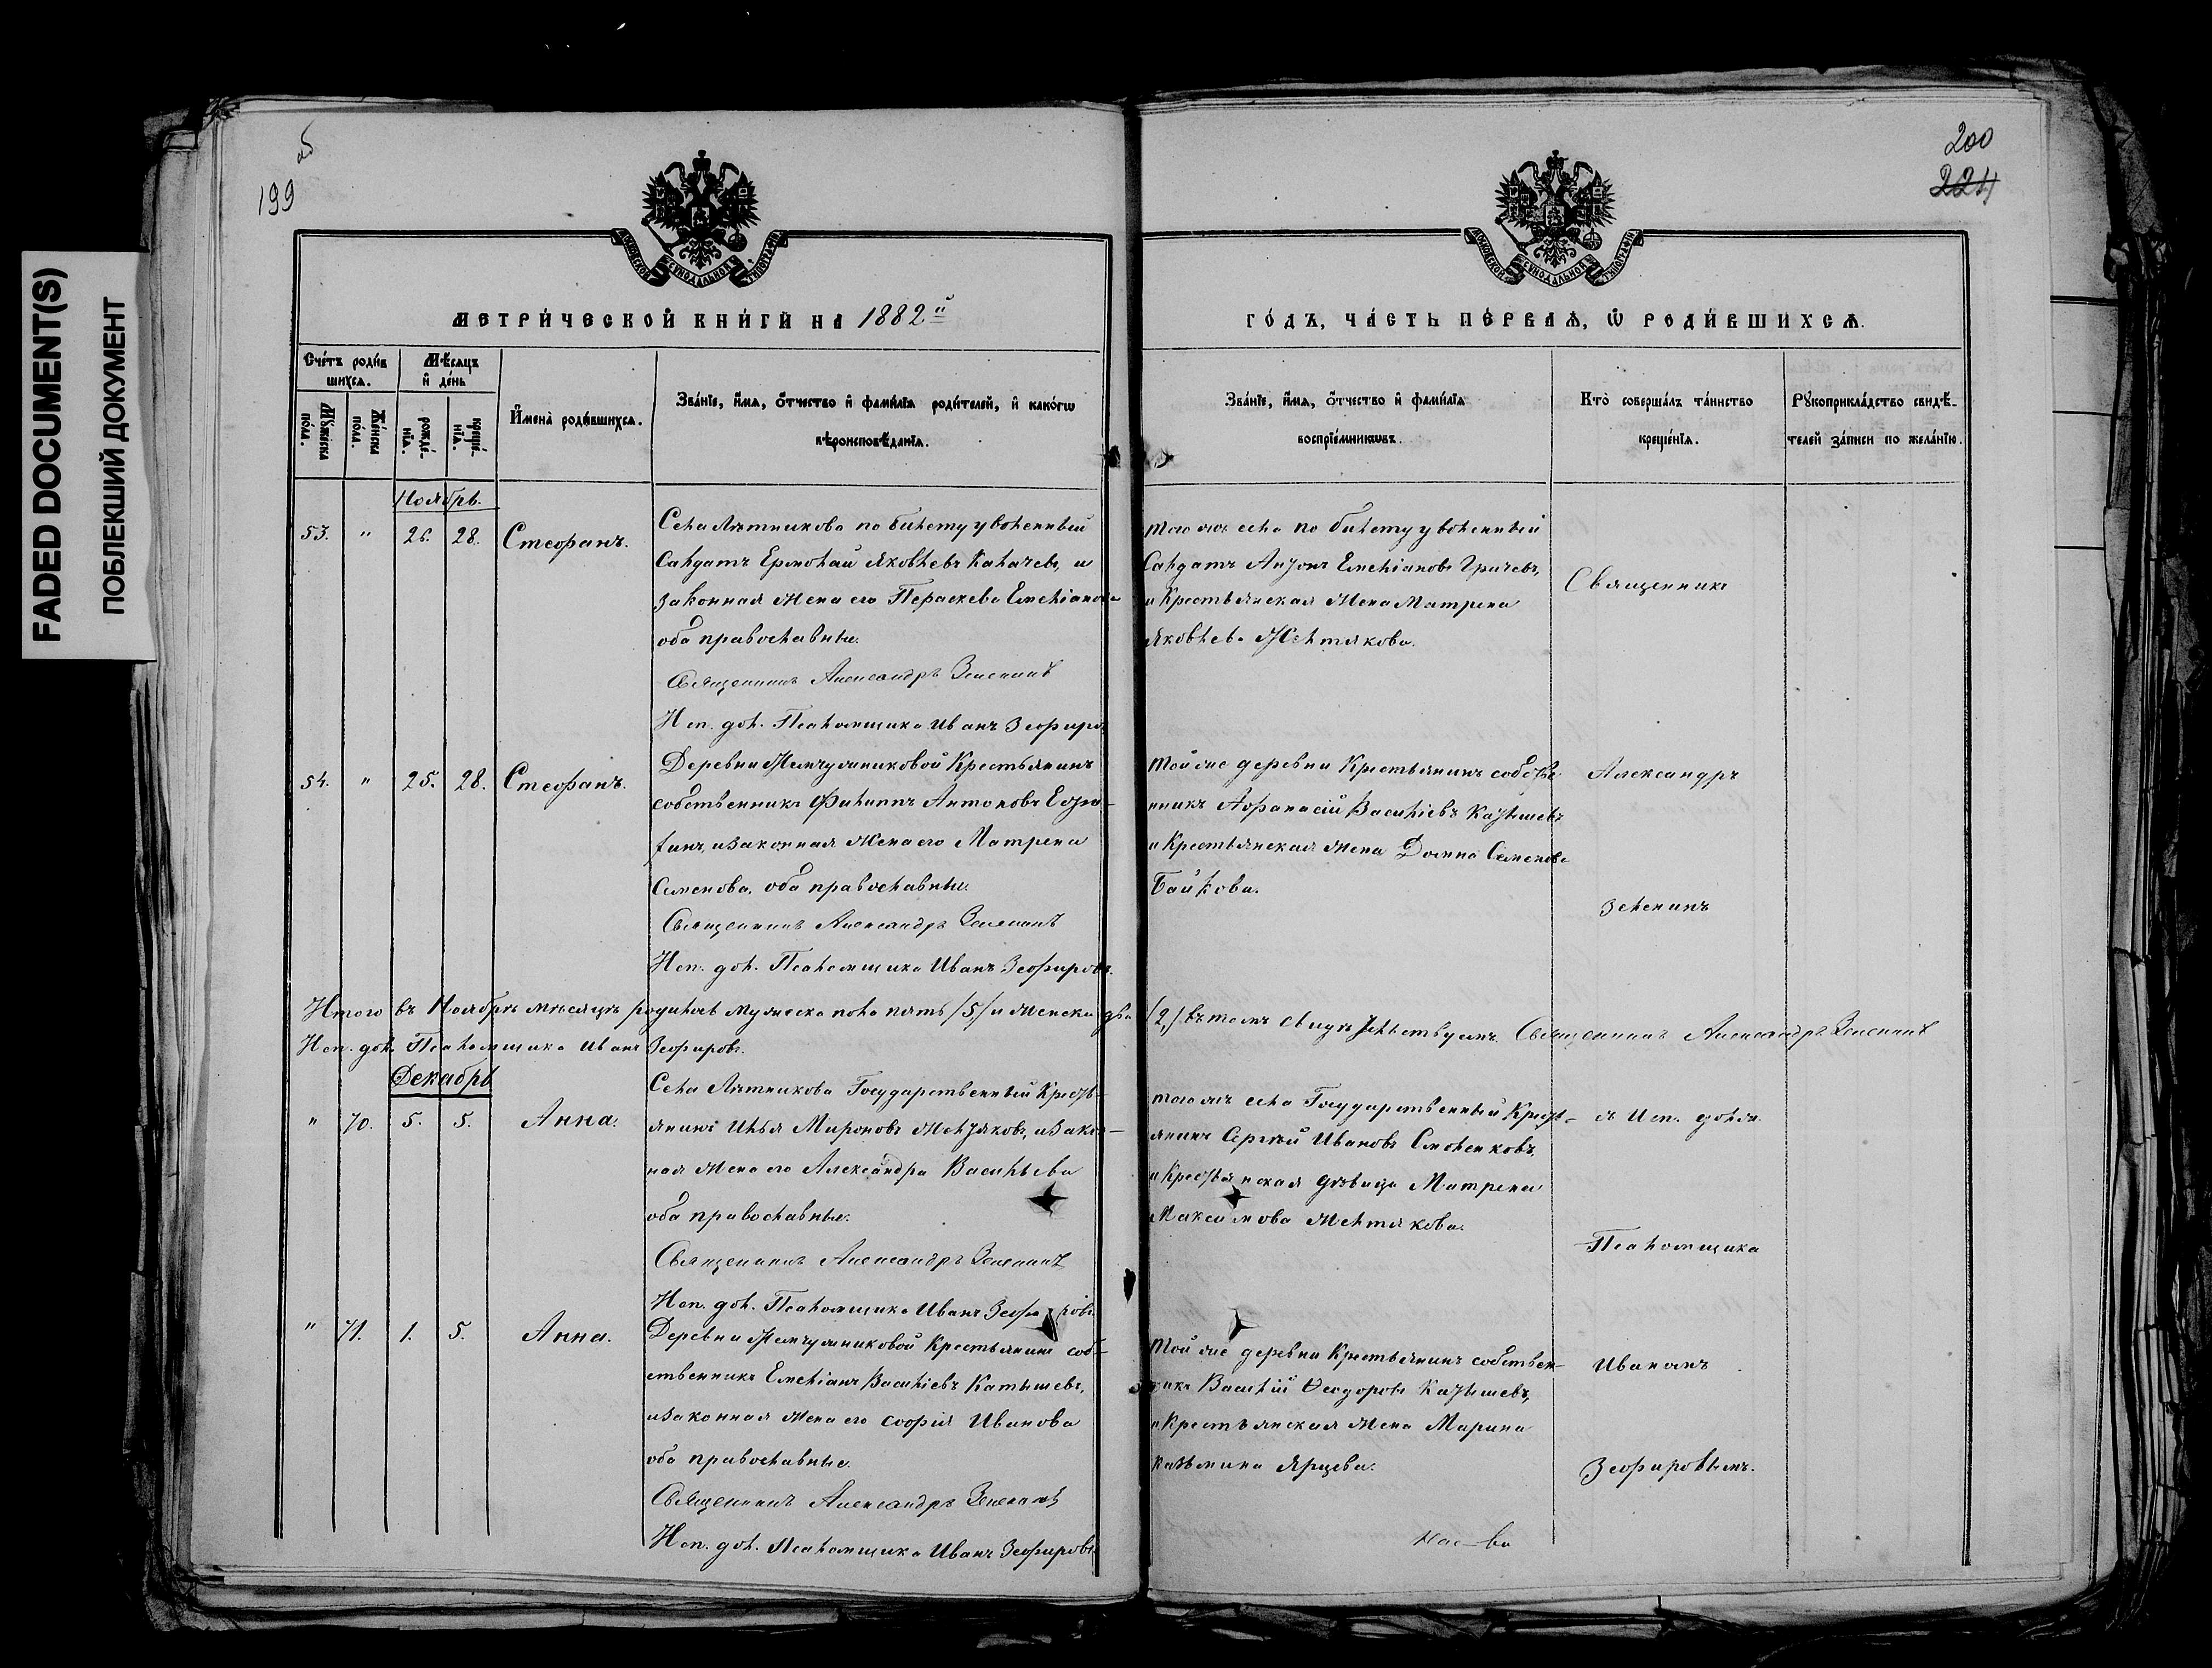 FADED DOCUMENT(S)
ПОБЛЕКШИЙ ДОКУМЕНТ
199
об
200
224
МОСКОВСКОЙ СѴНОДАЛЬНОЙ ТИПОГРАФІИ
МОСКОВСКОЙ СѴНОДАЛЬНОЙ ТИПОГРАФІИ
МЕТРИ́ЧЕСКОЙ КНИ́ГИ НА 1882й
ГО́ДЪ, ЧА́СТЬ ПЕ́РВАѦ, Ѡ РОДИ́ВШИХСѦ.
Сче́тъ роди́в
шихсѧ.
Мѣ́сѧцъ
и҆ де́нь
Мꙋ́жеска по́ла.
Же́нска по́ла.
рожде́нїѧ.
креще́нїѧ.
И҆мена̀ роди́вшихсѧ.
Зва́нїе, и҆́мѧ, ѻ҆́тчество и҆ фами́лїѧ роди́телей, и҆ како́гѡ
вѣроисповѣ́данїѧ.
Зва́нїе, и҆́мѧ, ѻ҆́тчество и҆ фами́лїѧ
воспрїе́мникѡвъ.
Кто̀ соверша́лъ та́инство
креще́нїѧ.
Рꙋкоприкла́дство свидѣ́-
телей за́писи по жела́нїю.
Ноябрь.
53. " 26. 28. Стефанъ.
Села Лѣтникова по билету уволенный
Салдатъ Ермолай Яковлевъ Калачевъ, и
законная жена его Параскева Емеліанова
оба православные.
Священникъ Александръ Зеленинъ
Исп. дол. Псаломщика Иванъ Зефировъ
того же села по билету уволенный
Салдатъ Антонъ Емеліановъ Грачевъ,
и Крестьянская жена Матрена
Яковлева Желтякова.
Священникъ
54. " 25. 28. Стефанъ.
Деревни Жемчужниковой Крестьянинъ
собственникъ Филиппъ Антоновъ
и законная жена его Матрена
Семенова, оба православные.
Священникъ Александръ Зеленинъ
Исп. дол. Псаломщика Иванъ Зефировъ.
Той же деревни Крестьянинъ собстве
нникъ Афанасій Василіевъ Катышевъ
и Крестьянская жена Домна Семенова
Байкова.
Александръ
Зеленинъ
Итого въ Ноябрѣ мѣсяцѣ родилось мужеска пола пять /5/ и женска два /2,/ въ томъ свидѣтельствуемъ. Священникъ Александръ Зеленинъ
Исп. дол. Псаломщика Иванъ Зефировъ.
Декабрь
" 70. 5. 5. Анна.
Села Лѣтникова Государственный Кресть-
янинъ Илья Мироновъ Желтяковъ, и закон-
ная жена его Александра Васильева
оба православные.
Священникъ Александръ Зеленинъ
Исп. дол. Псаломщика Иванъ Зефировъ.
того же села Государственный Кресть-
янинъ Сергѣй Ивановъ Смоленковъ,
и Крестьянская дѣвица Матрена
Максимова Желтякова.
съ Исп. долж.
Псаломщика
" 71. 1. 5. Анна.
Деревни Жемчужниковой Крестьянинъ соб-
ственникъ Емеліанъ Василіевъ Катышевъ,
и законная жена его Софія Иванова
оба православные.
Священникъ Александръ Зеленинъ
Исп. дол. Псаломщика Иванъ Зефировъ
Той же деревни Крестьянинъ собствен-
никъ Василій Ѳеодоровъ Катышевъ,
и Крестьянская жена Марина
Казьмина Ярцева.
Иваномъ
Зефировымъ.